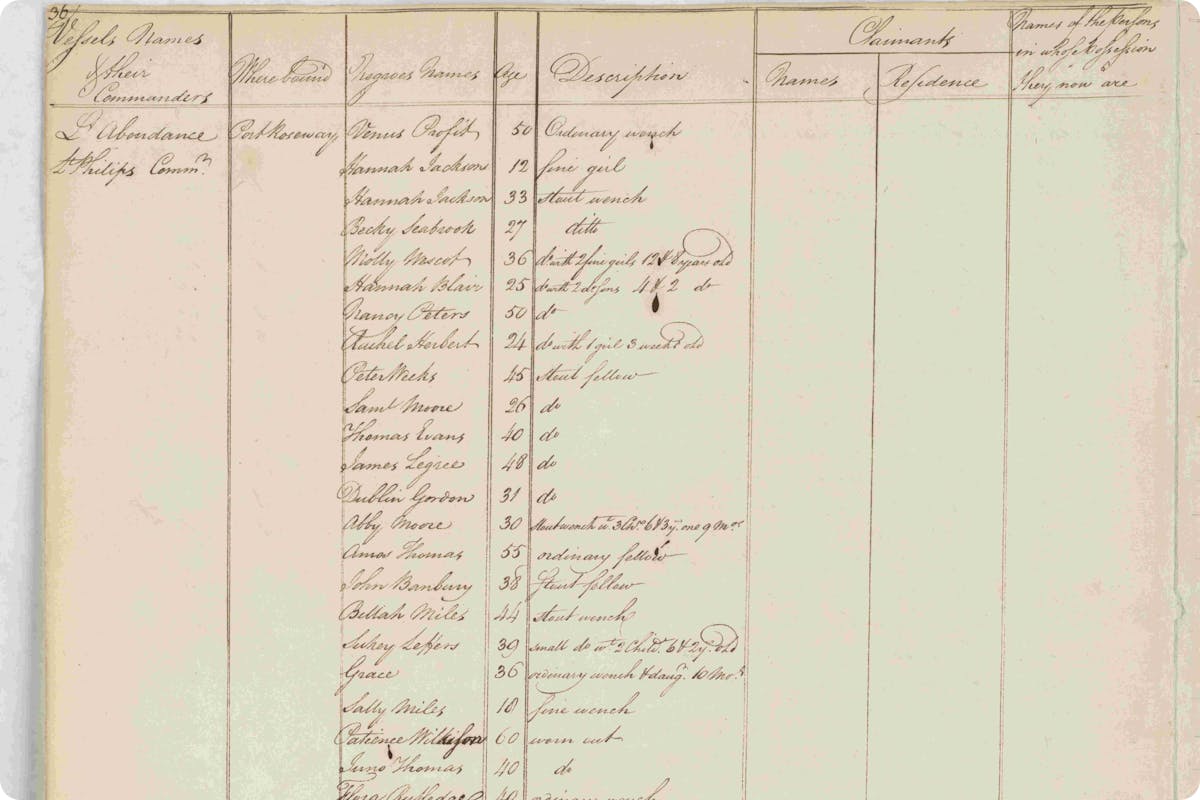 36
Vessels Names & their Commanders Where bound Negroes Names Age Description Claimants Names Residence Names of the Persons in whose Possession they now are
L'Abondance Port Roseway Venus Profit 50 Ordinary wench
Lt Philips Commr. Hannah Jackson 12 fine girl
Hannah Jackson 33 stout wench
Becky Seabrook 27 ditto
Molly Mascot 36 do with 2 fine girls 12 & 8 years old
Hannah Blair 25 do with 2 do sons 4 & 2 do
Nancy Peters 50 do
Rachel Herbert 24 do with 1 girl 3 weeks old
Peter Weeks 45 stout fellow
Saml Moore 26 do
Thomas Evans 40 do
James Legree 48 do
Dublin Gordon 31 do
Abby Moore 30 stout wench wt. 3 Chn. 6 & 3 y. one 9 Mos.
Amos Thomas 55 ordinary fellow
John Banbury 38 stout fellow
Bellah Miles 44 stout wench
Sukey Leffers 39 small do wt. 2 Child. 6 & 2 y. old
Grace 36 ordinary wench & daug. 10 Mos.
Sally Miles 18 fine wench
Patience Wilkison 60 worn out
Juno Thomas 40 do
Flora Rutledge 40 ordinary wench